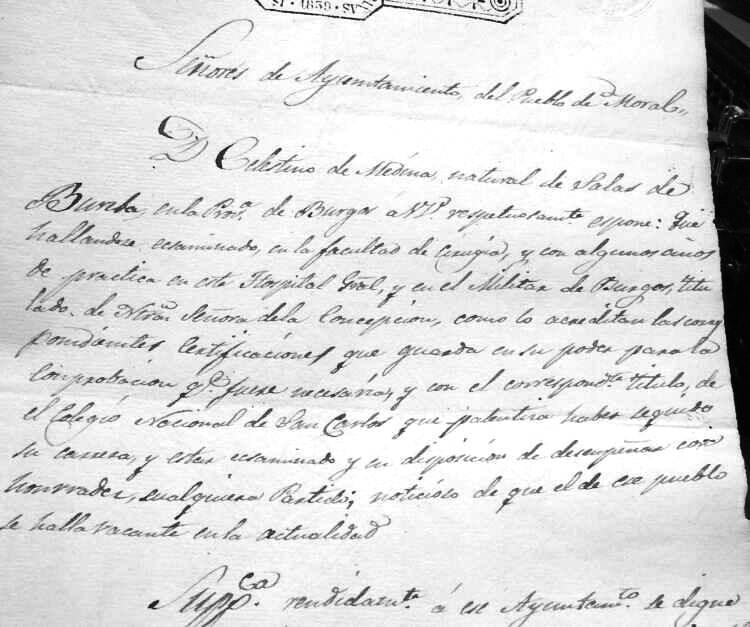 1839
Señores de Ayuntamiento, del Pueblo de Moral,,
D Celestino de Medina, natural de Salas de
Bureba, en la Prov.ª de Burgos á V.S. respetuosam.te espone: Que
hallandose ecsaminado, en la facultad de Cirugia, y con algunos años
de practica en este Hospital Gral, y en el Militar de Burgos, titu
lado de Ntra Señora dela Concepcion, como lo acreditan las corres
pondientes Certificaciones que guarda en su poder para la
Comprobacion q.e fuere necesaria, y con el correspond.te titulo, de
el Colegio Nacional de San Carlos que patentiza haber seguido
su carrera, y estar ecsaminado y en disposicion de desempeñar con
honrradez, cualquiera Partido; noticioso de que el de ese pueblo
se halla vacante en la actualidad
Supp.ca rendidam.te á ese Ayuntam.to se digne